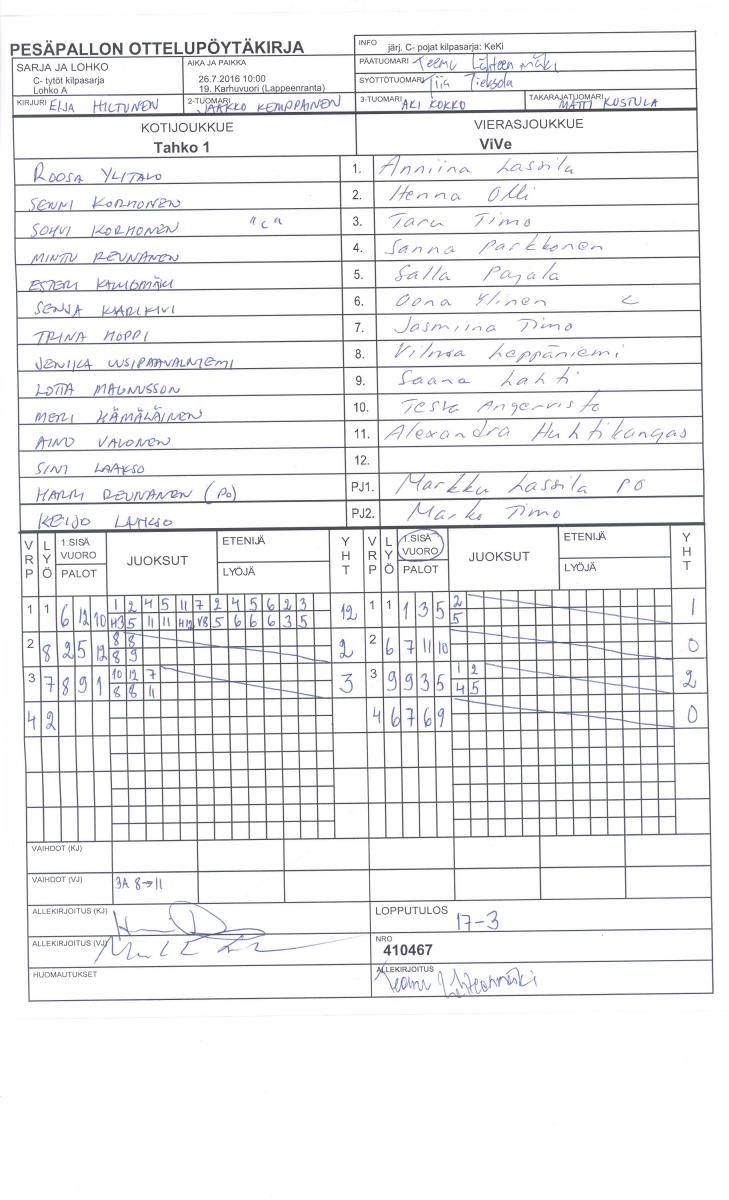 PESÄPALLON OTTELUPÖYTÄKIRJA
INFO järj. C- pojat kilpasarja: KeKi
SARJA JA LOHKO
C- tytöt kilpasarja
Lohko A
AIKA JA PAIKKA
26.7.2016 10:00
19. Karhuvuori (Lappeenranta)
PÄÄTUOMARI Teemu Lähteenmäki
SYÖTTÖTUOMARI Tiia Tieksola
KIRJURI EIJA HILTUNEN
2-TUOMARI JAAKKO KEMPPAINEN
3-TUOMARI AKI KOKKO
TAKARAJATUOMARI MATTI KUSTULA
KOTIJOUKKUE
Tahko 1
VIERASJOUKKUE
ViVe
ROOSA YLITALO 1. Anniina Lassila
SENNI KORHONEN 2. Henna Olli
SOHVI KORHONEN "C" 3. Taru Timo
MINTU REUNANEN 4. Sanna Parkkonen
ESTERI 5. Salla Pajala
SENJA KARIKIVI 6. Oona Ylinen C
TRINA HOPPI 7. Jasmiina Timo
JENIKA UUSIPAAVALNIEMI 8. Vilma Leppäniemi
LOTTA MAGNUSSON 9. Saana Lahti
MERI KÄMÄLÄINEN 10. Angervisto
AINO VALONEN 11. Alexandra Huhtikangas
SINI LAAKSO 12.
HARRI REUNANEN (PO) PJ1. Markku Lassila PO
KEIJO LAAKSO PJ2. Marko Timo
VRP LYÖ 1.SISÄ VUORO PALOT JUOKSUT ETENIJÄ LYÖJÄ YHT VRP LYÖ 1.SISÄ VUORO PALOT JUOKSUT ETENIJÄ LYÖJÄ YHT
1 1 6 12 10 1 2 4 5 11 7 2 4 5 6 2 3 12 1 1 1 3 5 2 1
H3 5 11 11 H12 V8 5 6 6 6 3 5 5
2 8 2 5 12 8 8 2 2 6 7 11 10 0
8 9
3 7 8 9 1 10 12 7 3 3 9 9 3 5 1 2 2
8 8 11 4 5
4 2 4 6 7 6 9 0
VAIHDOT (KJ)
VAIHDOT (VJ) 3A 8→11
ALLEKIRJOITUS (KJ)
LOPPUTULOS 17-3
ALLEKIRJOITUS (VJ)
NRO
410467
HUOMAUTUKSET
ALLEKIRJOITUS Teemu Lähteenmäki